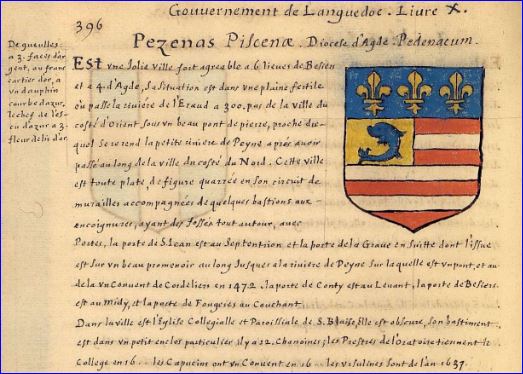 Gouvernement de Languedoc. Liure X.
396
Pezenas Piscenæ. Diocese d'Agde. Pedenacum.
De gueulles
a 3. faces d'ar
gent, au franc
cartier d'or, a
vn dauphin
courbe d'azur,
le chef de l'es-
cu d'azur a 3.
fleur de lis d'or.
Est vne Jolie ville fort agreable a 6 lieues de Besiers
et a 4. d'Agde, sa situation est dans vne plaine fertile
ou passe la riviere de l'Eraud a 300. pas de la ville du
costé d'Orient sous vn beau pont de pierre, proche du-
quel se rend la petite riviere de Peyne aprés auoir
passé au long de la ville du costé du Nord. Cette ville
est toute plate, de figure quarrée en son circuit de
murailles accompagnées de quelques bastions aux-
encoignures, ayant des fossés tout autour, avec
Portes, la porte de S. Jean est au Septentrion et la porte de la Graue en suitte dont l'issue
est sur vn beau promenoir au long jusques a la riviere de Peyne sur laquelle est vn pont, et au
de la vn Conuent de Cordeliers en 1472. la porte de Conty est au Leuant, la porte de Besiers
est au Midy, et la porte de Fougeres au Couchant.
Dans la ville est l'Eglise Collegialle et Paroissiale de S. Blaise, Elle est obscure, son bastiment
est dans vn petit enclos particulier il y a 12. Chanoines; les Prestres de l'oratoire tiennent le
College en 16 .. les Capucins ont vn Conuent en 16 .. les vrsulines sont de l'an 1637.